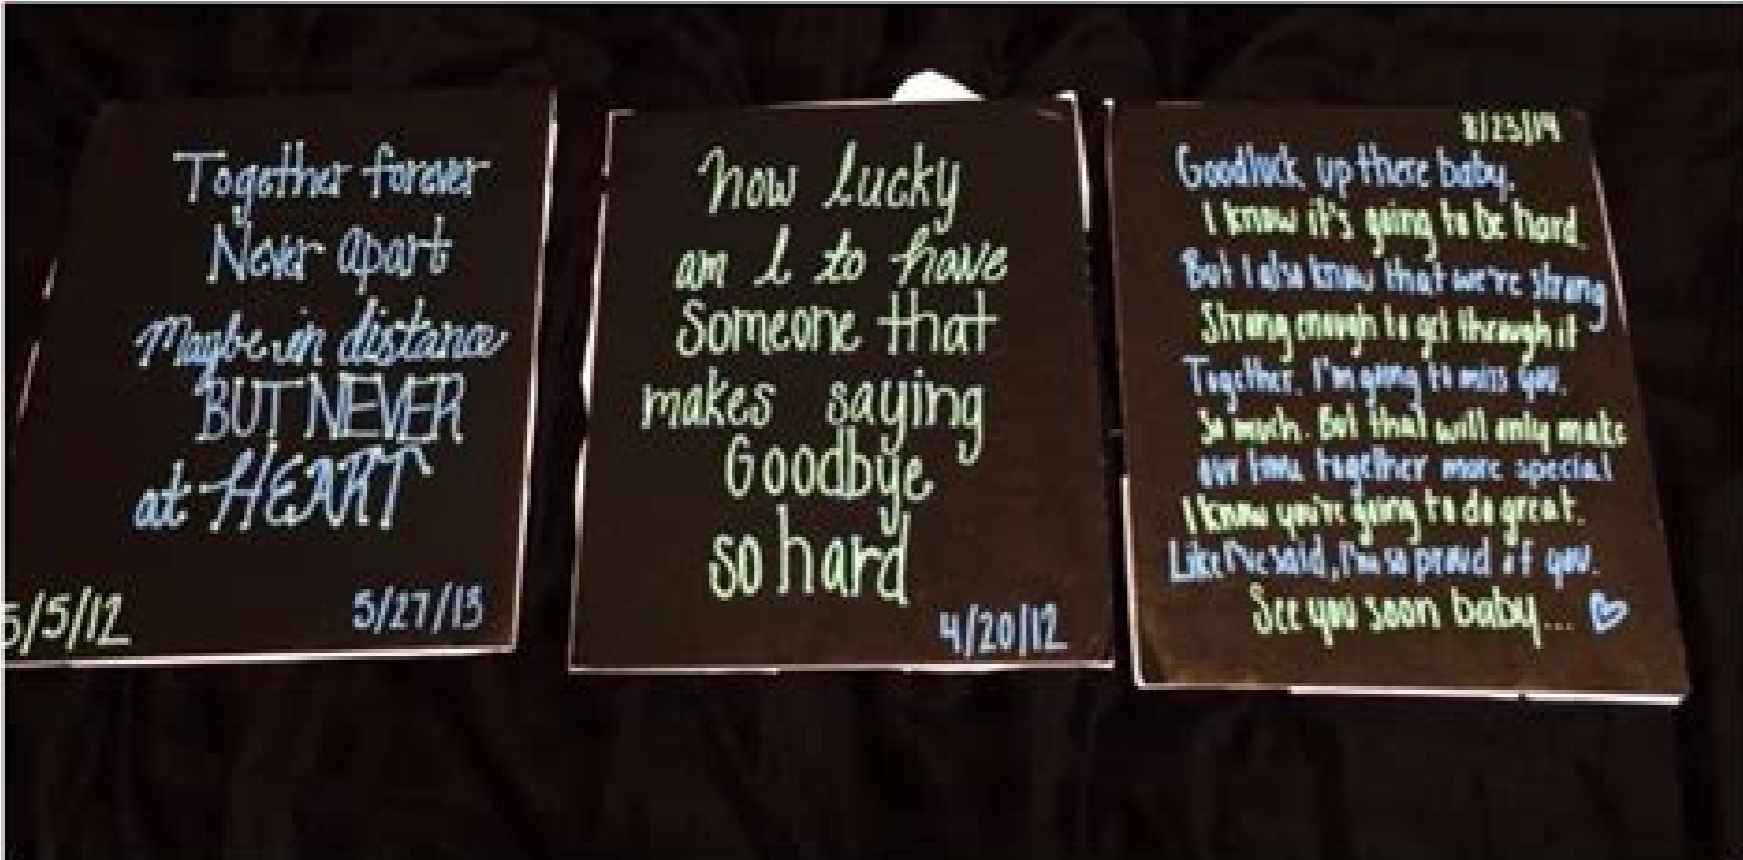 Together forever
Never apart
Maybe in distance
BUT NEVER
at HEART
5/5/12
5/27/13
how lucky
am I to have
Someone that
makes saying
Goodbye
so hard
4/20/12
8/23/14
Goodluck up there baby.
I know it's going to be hard.
But I also know that we're strong
Strong enough to get through it
Together. I'm going to miss you.
So much. But that will only make
our time together more special
I know you're going to do great.
Like I've said, I'm so proud of you.
See you soon baby... ♡